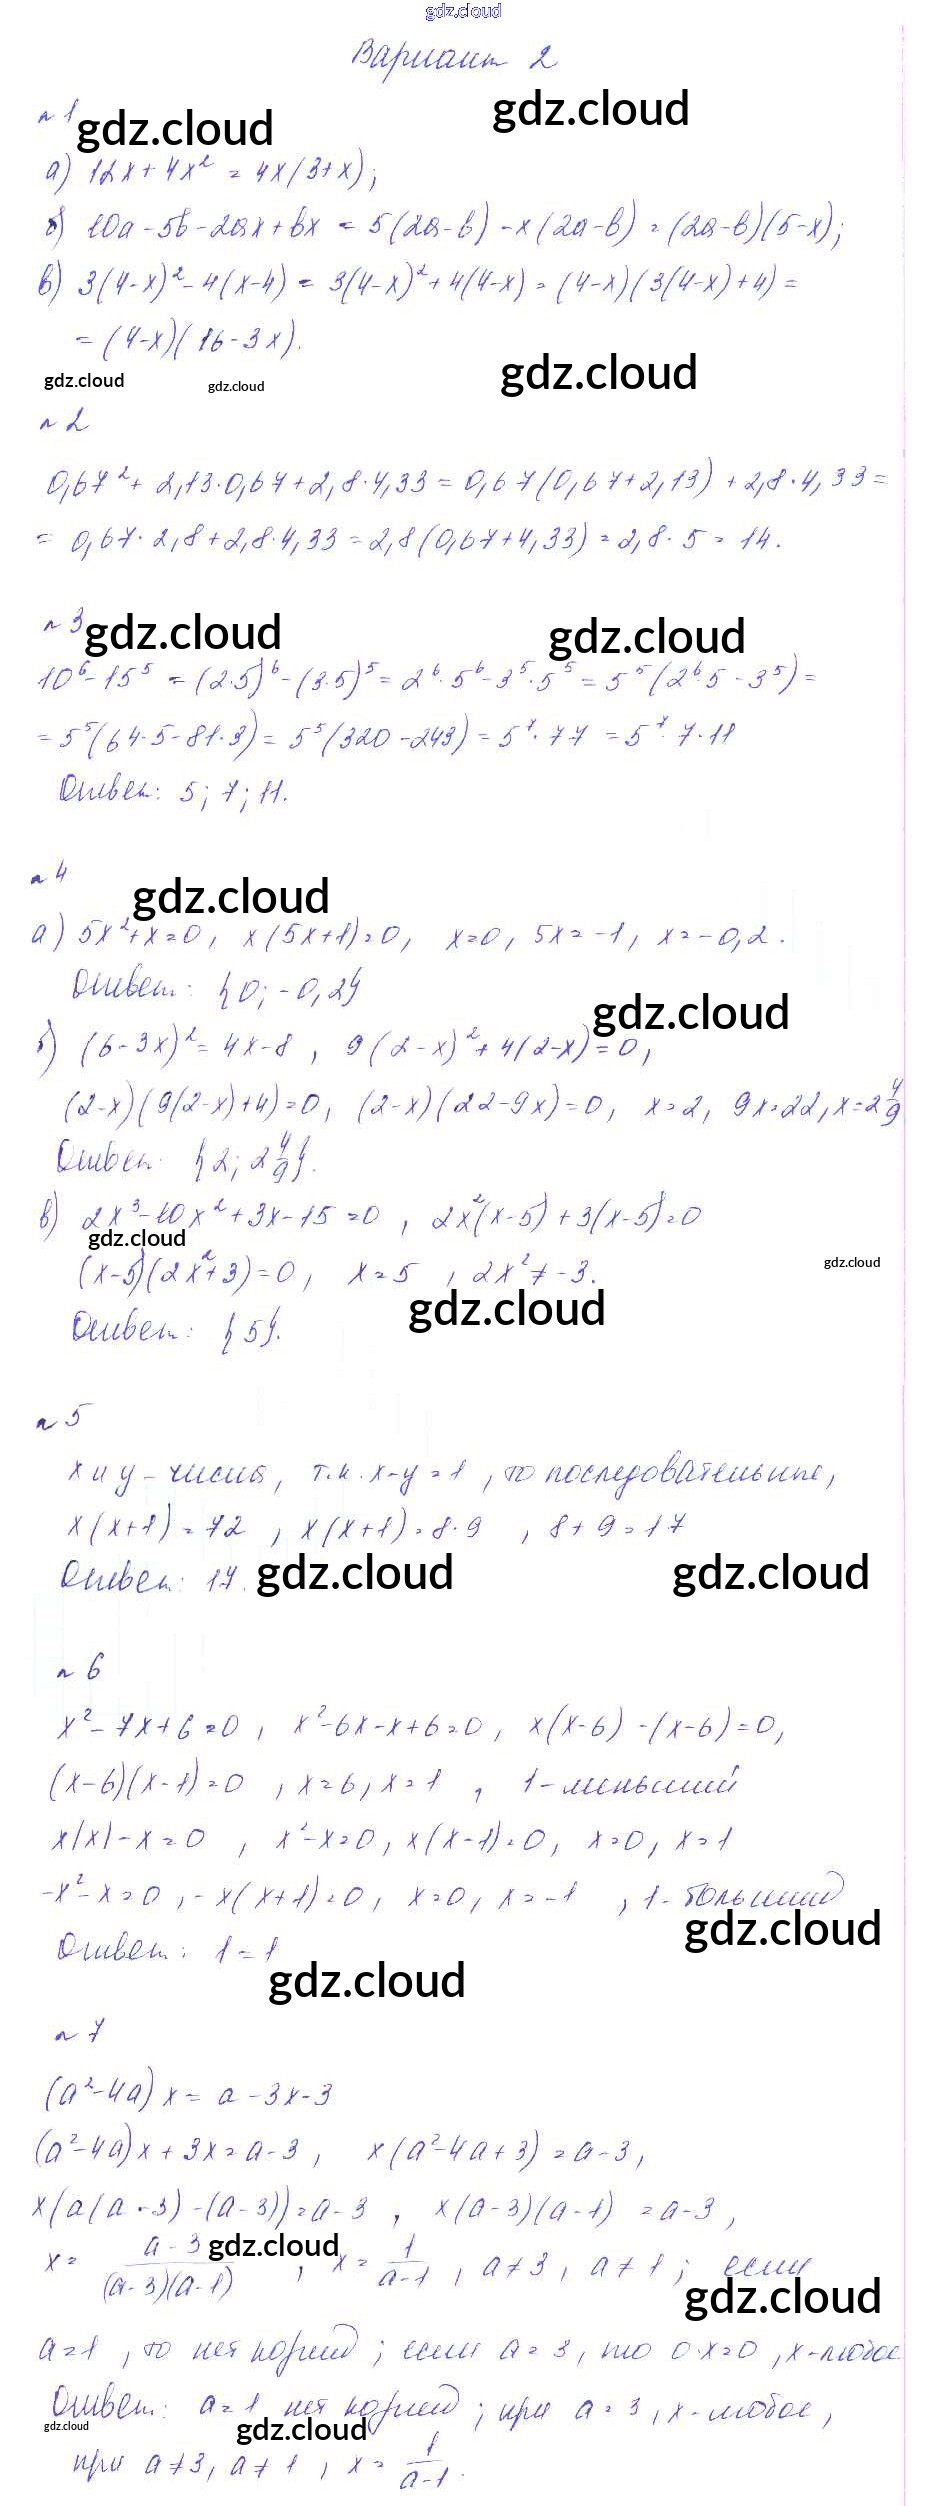 gdz.cloud
Вариант 2
gdz.cloud
n 1 gdz.cloud
а) 12x + 4x² = 4x(3+x);
б) 10a - 5b - 2ax + bx = 5(2a-b) - x(2a-b) = (2a-b)(5-x);
в) 3(4-x)² - 4(x-4) = 3(4-x)² + 4(4-x) = (4-x)(3(4-x)+4) =
= (4-x)(16-3x).
gdz.cloud gdz.cloud gdz.cloud
n 2
0,67² + 2,13·0,67 + 2,8·4,33 = 0,67(0,67+2,13) + 2,8·4,33 =
= 0,67·2,8 + 2,8·4,33 = 2,8(0,67+4,33) = 2,8·5 = 14.
n 3 gdz.cloud gdz.cloud
10⁶ - 15⁵ = (2·5)⁶ - (3·5)⁵ = 2⁶·5⁶ - 3⁵·5⁵ = 5⁵(2⁶·5 - 3⁵) =
= 5⁵(64·5 - 81·3) = 5⁵(320 - 243) = 5⁷·77 = 5⁷·7·11
Ответ: 5; 7; 11.
n 4
gdz.cloud
а) 5x² + x = 0, x(5x+1) = 0, x=0, 5x = -1, x = -0,2.
Ответ: {0; -0,2}
gdz.cloud
б) (6-3x)² = 4x-8, 9(2-x)² + 4(2-x) = 0,
(2-x)(9(2-x)+4) = 0, (2-x)(22-9x) = 0, x=2, 9x=22, x=2 4/9
Ответ: {2; 2 4/9}.
в) 2x³ - 10x² + 3x - 15 = 0, 2x²(x-5) + 3(x-5) = 0
gdz.cloud
(x-5)(2x²+3) = 0, x = 5, 2x² ≠ -3.
gdz.cloud
gdz.cloud
Ответ: {5}.
n 5
x и y - числа, т.к. x-y = 1, то последовательные,
x(x+1) = 72, x(x+1) = 8·9, 8+9 = 17
Ответ: 17. gdz.cloud gdz.cloud
n 6
x² - 7x + 6 = 0, x² - 6x - x + 6 = 0, x(x-6) - (x-6) = 0,
(x-6)(x-1) = 0, x=6, x=1, 1 - меньший
x|x| - x = 0, x² - x = 0, x(x-1) = 0, x=0, x=1
-x² - x = 0, -x(x+1) = 0, x=0, x=-1, 1 - больший
gdz.cloud
Ответ: 1 = 1
gdz.cloud
n 7
(a²-4a)x = a - 3x - 3
(a²-4a)x + 3x = a-3, x(a²-4a+3) = a-3,
x(a(a-3) - (a-3)) = a-3, x(a-3)(a-1) = a-3,
gdz.cloud
x = a-3/(a-3)(a-1), x = 1/a-1, a≠3, a≠1; если
gdz.cloud
a=1, то нет корней; если a=3, то 0·x=0, x-любое
Ответ: a=1 нет корней; при a=3, x-любое,
gdz.cloud gdz.cloud
при a≠3, a≠1, x = 1/a-1.